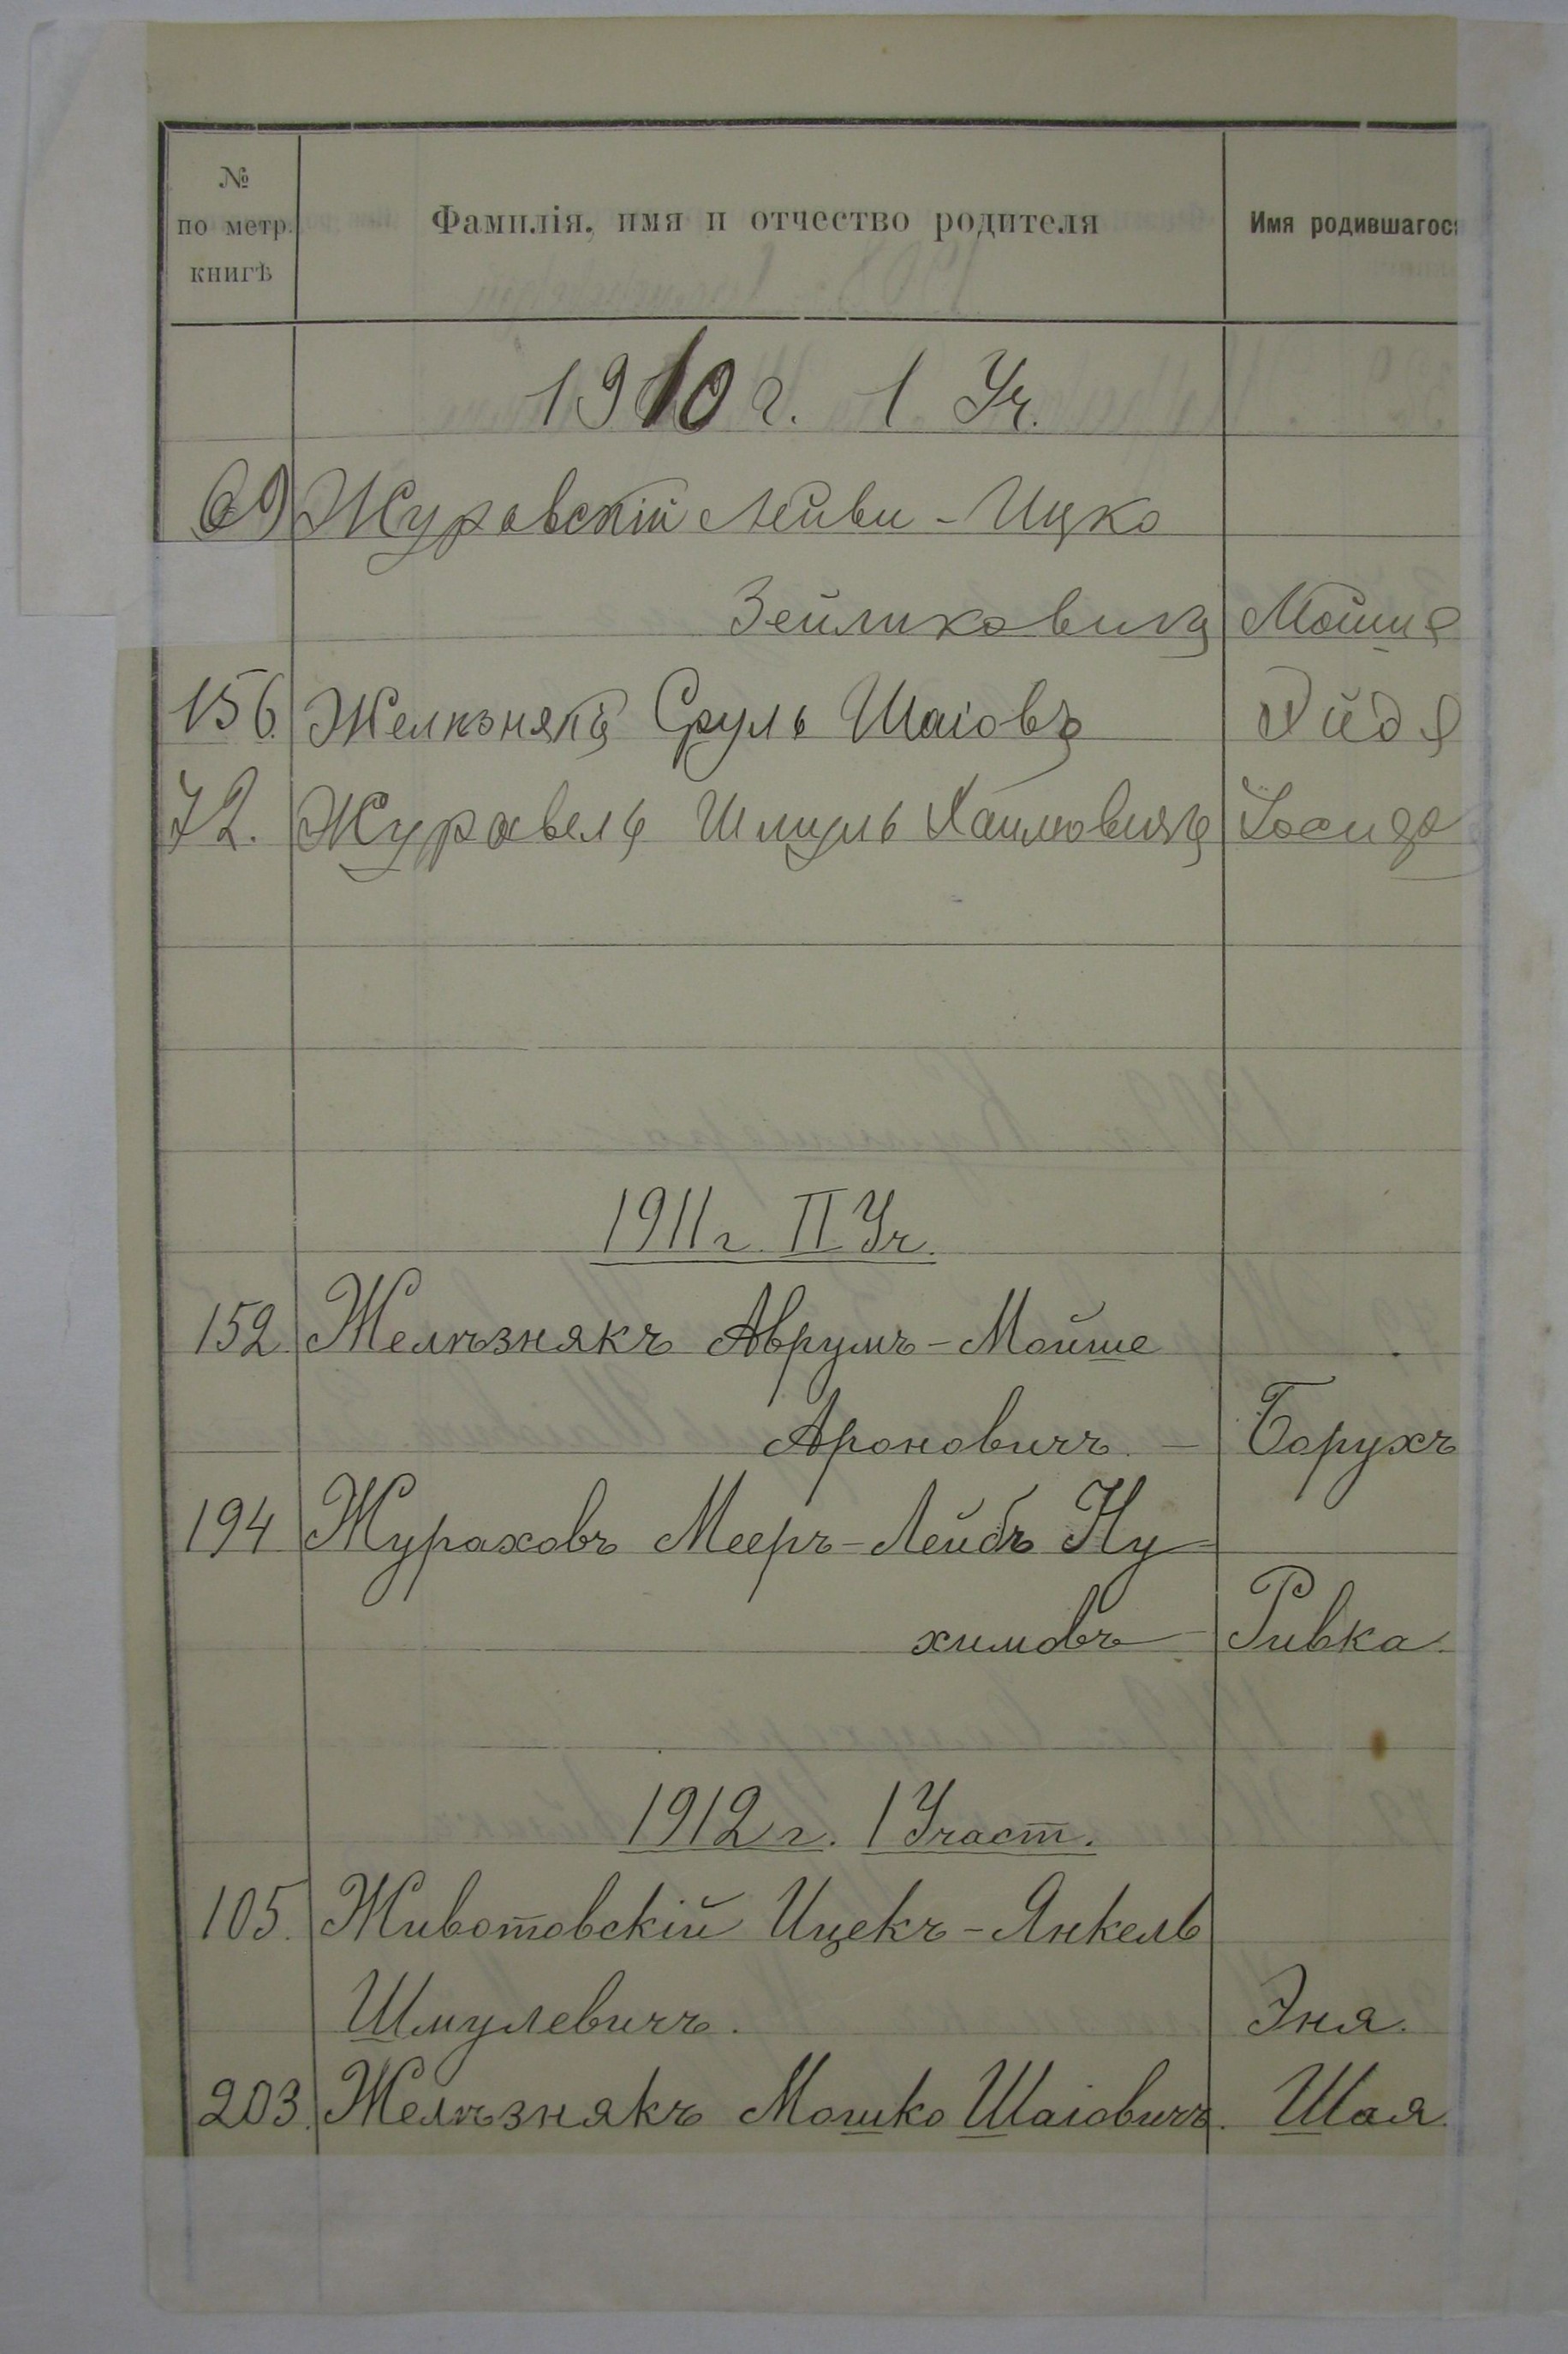 №
по метр.
книгѣ
Фамилія, имя и отчество родителя
Имя родившагос
1910 г. 1 Уч.
69 Журавскій Лейви-Ицко
Зейликовичъ Мойше
156. Желѣзнякъ Сруль Шаіовъ
72. Журавель Шмуль Хаимовичъ
1911 г. II Уч.
152. Желѣзнякъ Аврумъ-Мойше
Ароновичъ. - Борухъ
194 Жураховъ Мееръ-Лейбъ Ну-
химовъ - Ривка.
1912 г. 1 Участ.
105. Животовскій Ицекъ-Янкель
Шмулевичъ. Эня.
203. Желѣзнякъ Мошко Шаіовичъ. Шая.